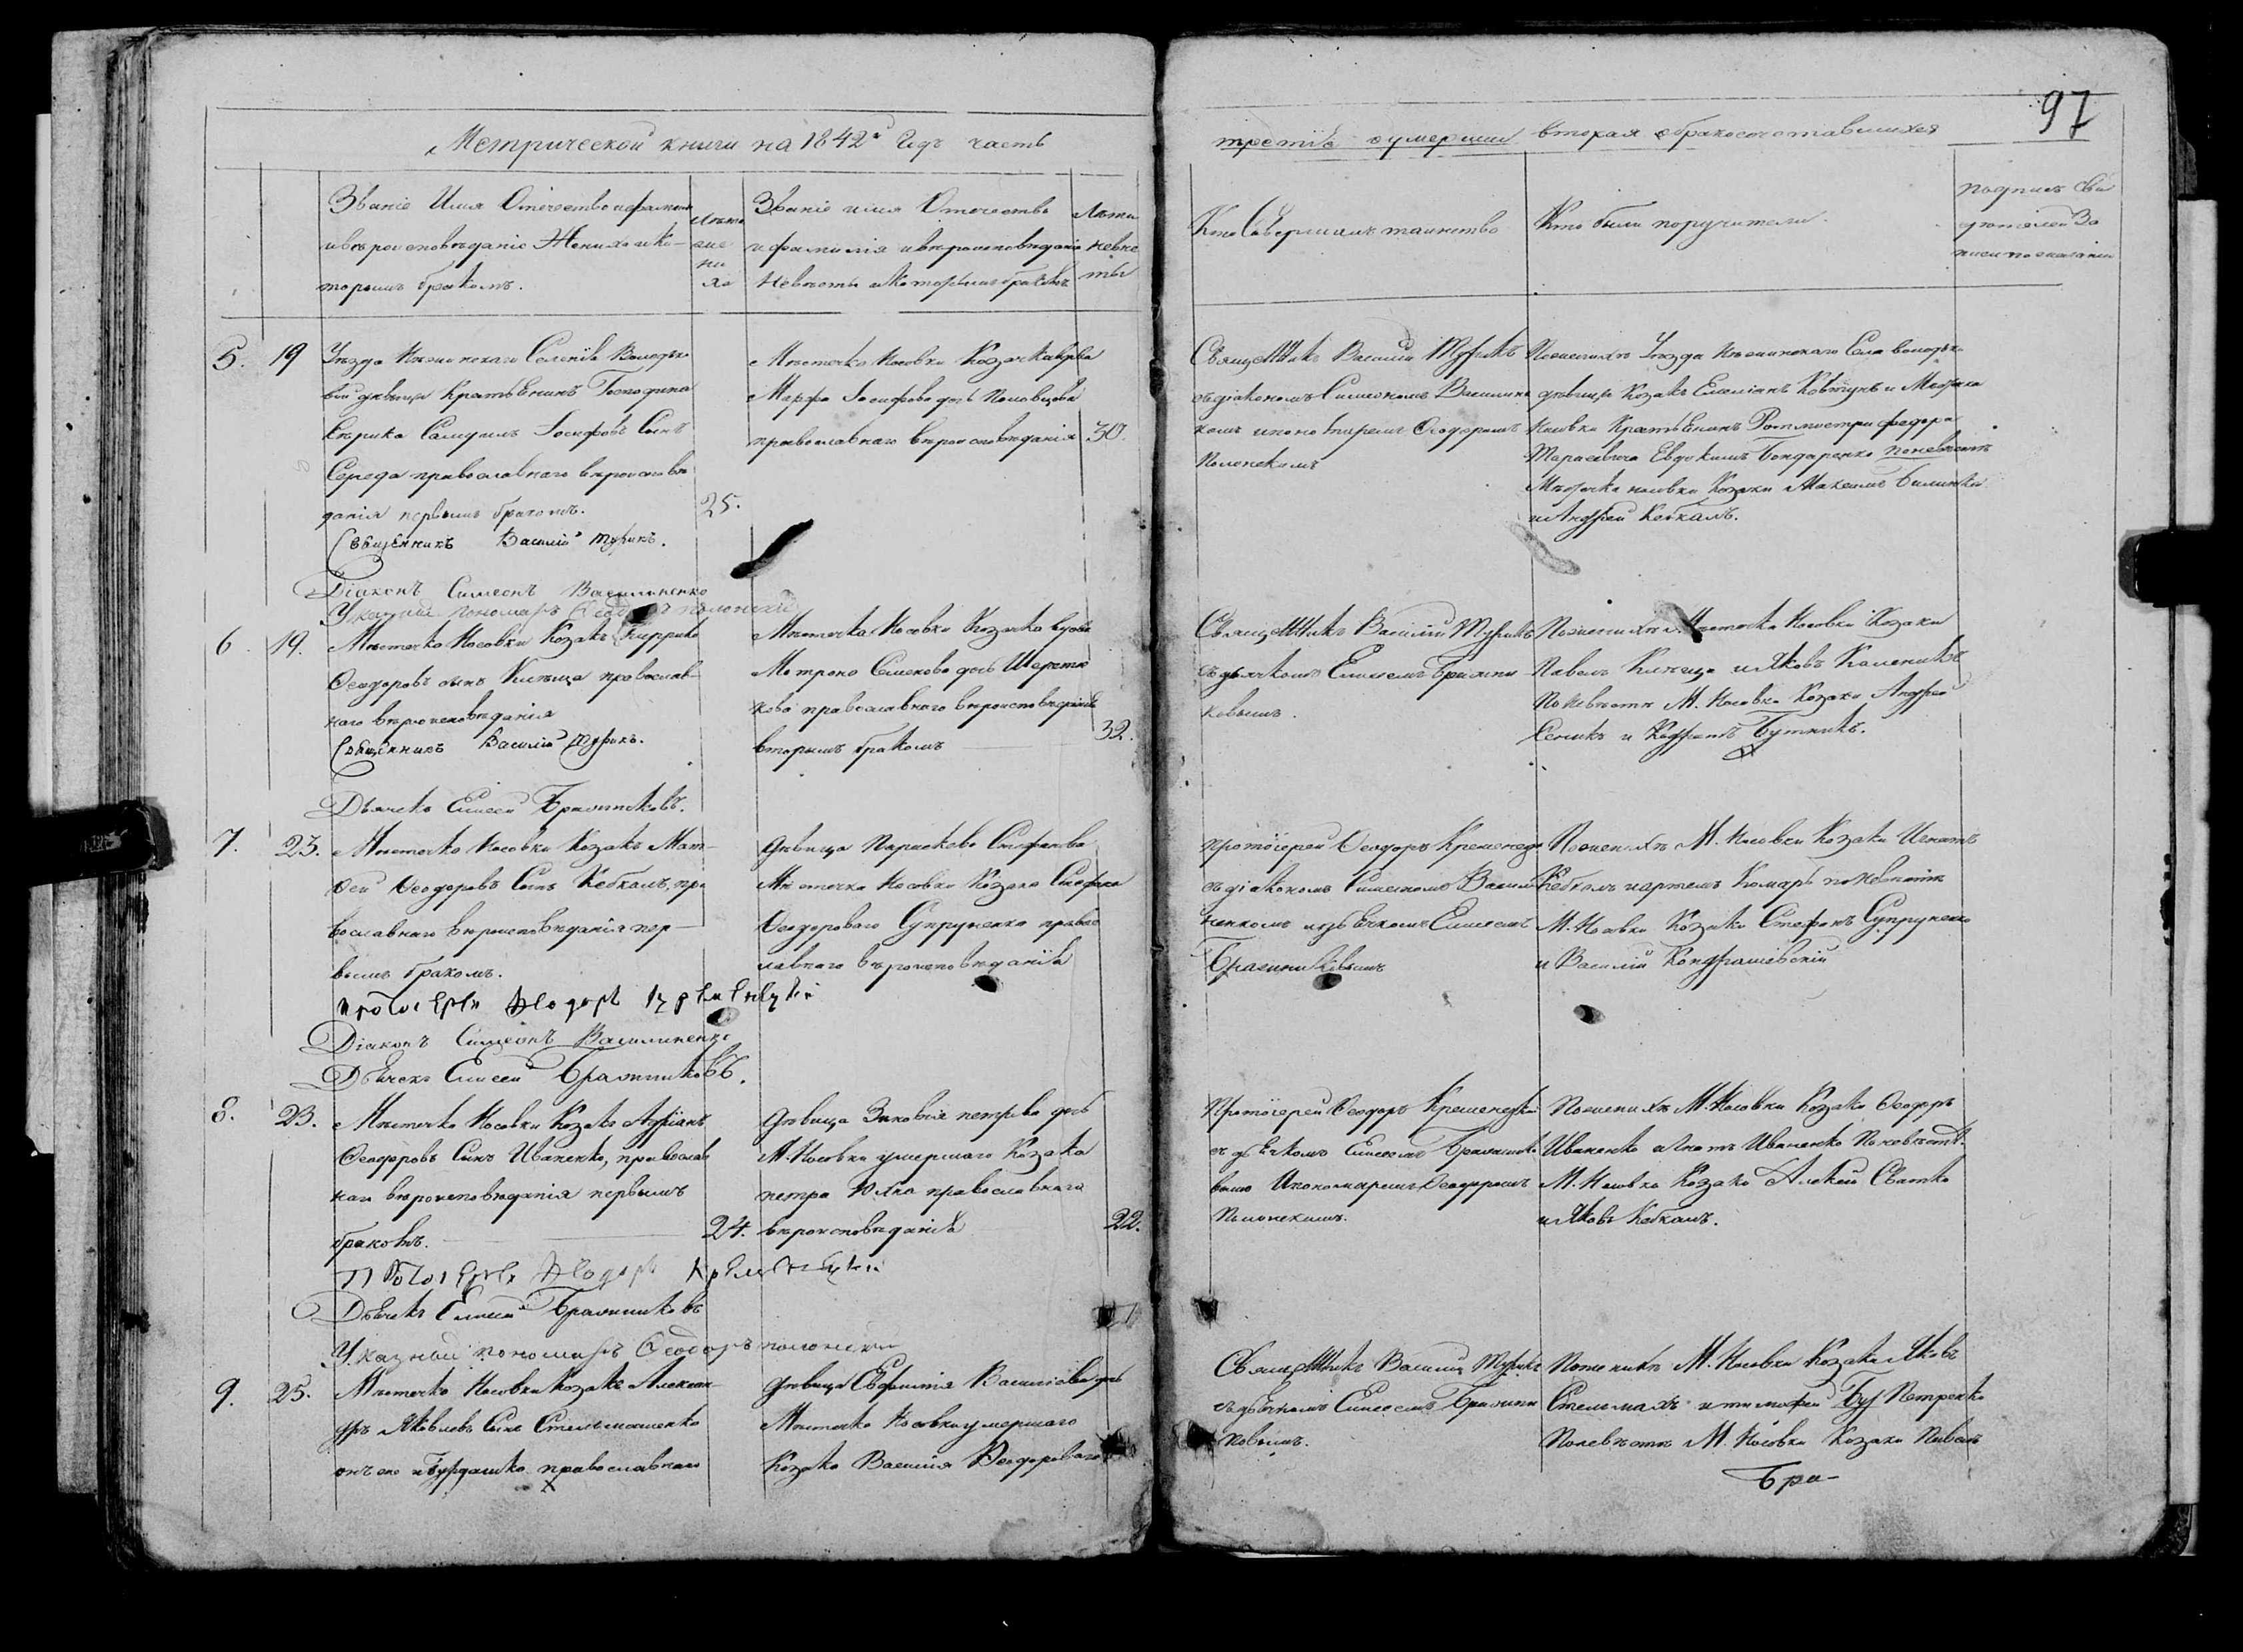 97
Метрической книги на 1842й Годъ часть
третія о умерших вторая о бракосочетавшихся
Званіе Имя Отечество и фамилія
и вѣроисповѣданіе Жениха и ко-
торымъ бракомъ.
Лѣта
же
ни
ха
Званіе имя Отечество
и фамилія и вѣроисповѣданіе
Невѣсты и которымъ бракомъ
Лѣта
невѣс
ты
Кто Совершалъ таинство
Кто были поручители.
подпись Сви
дѣтелей За
писи по желанію
5.
19
Уезда Нѣжинскаго Селенія Володьк-
вой дѣвицы Крестьянинъ Господина
Самуилъ Іосифовъ Сынъ
Середа православнаго вѣроисповѣ
данія первымъ бракомъ.
25.
Священникъ Василій Турикъ.
Діаконъ Симеонъ Василиненко
Указный пономарь Ѳеодоръ полонскій
Мѣстечка Носовки Козачка вдова
Марфа Іосифова дочь Половцова
православнаго вѣроисповѣданія
30.
Священникъ Василій Турикъ
съ діакономъ Симеономъ Василинен
комъ и пономаремъ Ѳеодоромъ
Полонскимъ
По женихѣ Уезда Нѣжинскаго Села володьк-
дѣвицы Козакъ Емеліанъ Ковтунъ и Мѣстечка
Носовки Крестьянинъ Ротмистра федора
Тарасевича Евдокимъ Бондаренко по невѣстѣ
Мѣстечка носовки Козаки Максимъ Билинка
и Андрей Кебкалъ.
6.
19.
Мѣстечка Носовки Козакъ Кирриковъ
Ѳеодоровъ сынъ Клѣща православ-
наго вѣроисповѣданія
Священникъ Василій Турикъ.
Дьячокъ Елисей Бражниковъ.
Мѣстечка Носовки Козачка вдова
Матрона Семенова дочь Шерстю
кова православнаго вѣроисповѣданія
вторымъ бракомъ
32.
Священникъ Василій Турикъ
съ дьячкомъ Елисеемъ Бражни-
ковымъ.
По женихѣ Мѣстечка Носовки Козаки
Павелъ Клѣща и Яковъ Каленикъ
По Невѣстѣ М. Носовки Козаки Андрей
и Кодратъ Бутникъ.
7.
23.
Мѣстечка Носовки Козакъ Мат-
ѳей Ѳеодоровъ Сынъ Кебкалъ, пра
вославнаго вѣроисповѣданія пер-
вымъ бракомъ.
протоіерей Ѳеодоръ Кременецкій
Діаконъ Симеонъ Василиненко
Дьячокъ Елисей Бражниковъ.
Дѣвица Параскева Стефанова
Мѣстечка Носовки Козака Стефана
Ѳеодорового Супруненка правос
лавнаго вѣроисповѣданія
протоіерей Ѳеодоръ Кременецкій
съ діакономъ Симеономъ Васили
ненкомъ и дьячкомъ Елисеемъ
Бражниковымъ
По женихѣ М. Носовки Козаки Игнатъ
Кебкалъ и артемъ Комаръ по невѣстѣ
М. Носовки Козаки Стефанъ Супруненко
и Василій Кондрашевскій
8.
23.
Мѣстечка Носовки Козакъ Адріанъ
Ѳеодоровъ Сынъ Иваненко, православ
наго вѣроисповѣданія первымъ
бракомъ.
24.
протоіерей Ѳеодоръ Кременецкій
Дьячокъ Елисей Бражниковъ
Указный пономарь Ѳеодоръ полонскій
Дѣвица Зиновія петрова дочь
М. Носовки умершаго Козака
петра Юхна православнаго
вѣроисповѣданія
22.
Протоіерей Ѳеодоръ Кременецкій
съ дьячкомъ Елисеемъ Бражнико
вымъ И пономаремъ Ѳеодоромъ
Полонскимъ.
По женихѣ М. Носовки Козаки Ѳеодоръ
Иваненко и Игнатъ Иваненко По невѣстѣ.
М. Носовки Козаки Алексѣй Сватко
и Яковъ Кебкалъ.
9.
25.
Мѣстечка Носовки Козакъ Алексан
дръ Яковлевъ Сынъ Стельмашенко
онъ же и Бурдашко православнаго
Дѣвица Евфимія Василіева дочь
Мѣстечка Носовки умершаго
Козака Василія Ѳеодороваго
Священникъ Василій Турикъ
съ дьячкомъ Елисеемъ Бражни
ковымъ.
По женихѣ М. Носовки Козаки Яковъ
Стельмахъ и тимофей Петренко
По невѣстѣ М. Носовки Козаки Павелъ
Бра-